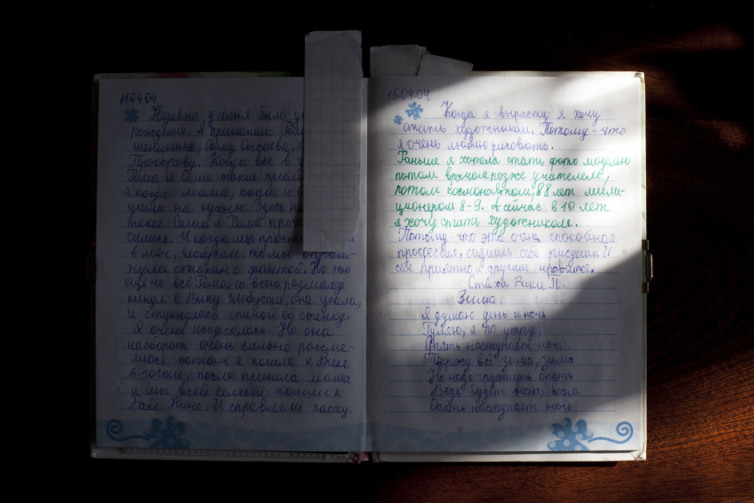 11.04.04
Недавно у меня было
рождение. Я пригласила
Прохорову. Когда все в
Рома и Саша
а когда мама, папа и
ушли на кухню. Здесь
такое. Саша и Рома
сились. И когда мы
в мяч,
нулся стакан с фантой. Но это
ещё не всё Рома со всего размаху
кинул в Вику она упала,
и стукнулась спиной об стенку.
Я очень испугалась. Но она
наоборот очень сильно рассме-
ялась потом я пошла к Вике
в гости, после пришла мама
и мы всей семьёй пошли к
Бабе Нине. И справляли пасху.
15.04.04
Когда я вырасту я хочу
стать художником. Потому-что
я очень люблю рисовать.
Раньше я хотела стать фото моделью
потом врачом, позже учителем,
потом космонавтом, в 8 лет мили-
ционером 8-9. А сейчас в 10 лет
я хочу стать художником.
Потому что это очень спокойная
профессия, сидишь себе рисуешь. И
себе приятно и другим нравится.
Стихи Вики П.
Зима.
Я думаю день и ночь
Гуляю, я по утру,
Опять наступает ночь
Прихожу всё зима, зима
Не надо грустить опять
Ведь будет весна весна
Опять наступает ночь